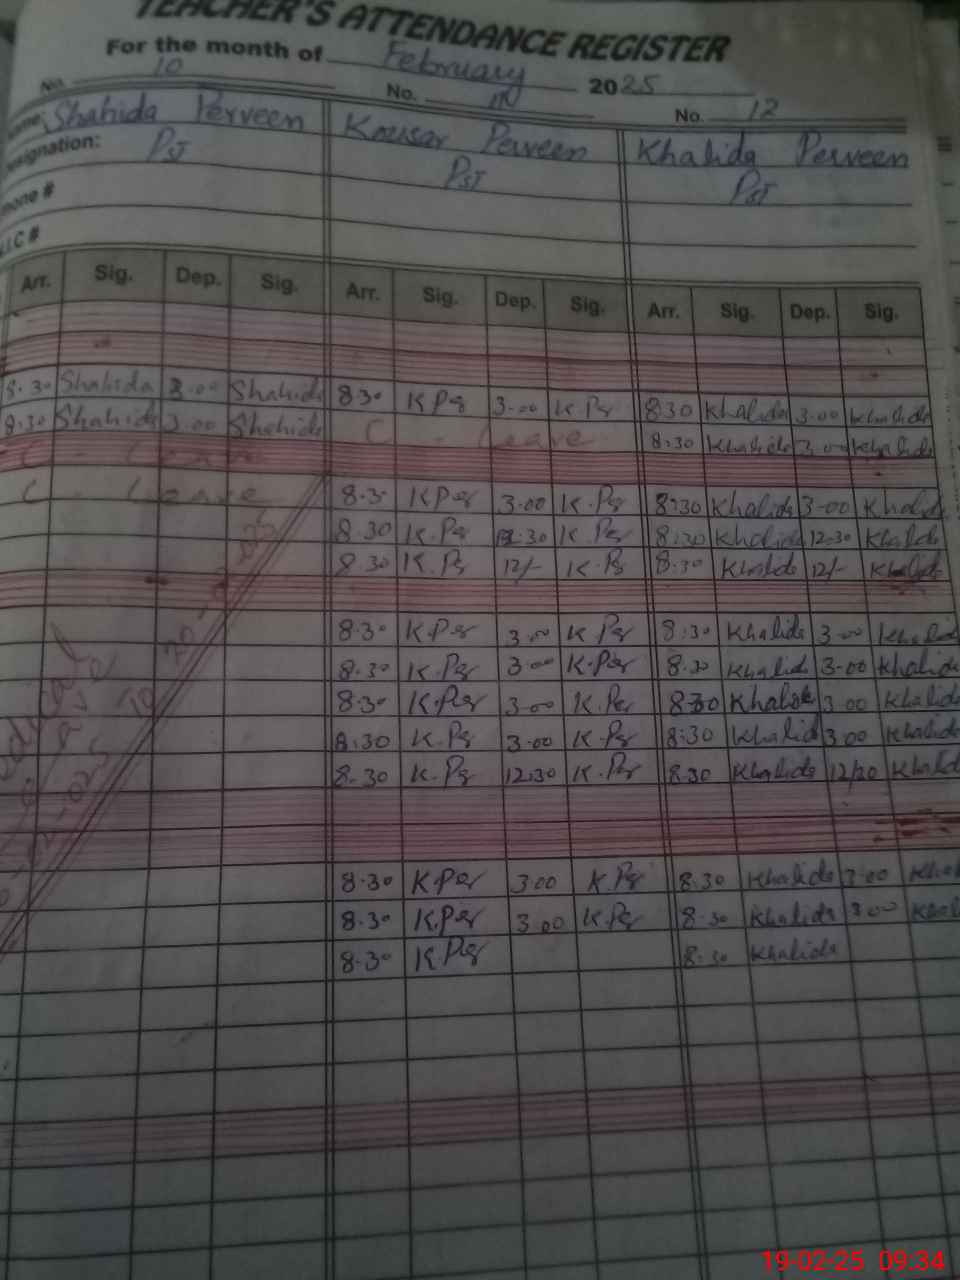 TEACHER'S ATTENDANCE REGISTER
For the month of February 2025
No. 10 No. No. 12
Shahida Perveen Kousar Perveen Khalida Perveen
PST PST PST
Arr. Sig. Dep. Sig. Arr. Sig. Dep. Sig. Arr. Sig. Dep. Sig.
8.30 Shahida 3.00 Shahida 8.30 K Per 3.00 K.Per 8.30 Khalida 3.00 Khalida
8.30 Shahida 3.00 Shahida C. Leave 8.30 Khalida 3.00 Khalida
C Leave
C. Leave 8.30 K Per 3.00 K.Per 8.30 Khalida 3.00 Khalida
8.30 K.Per 12.30 K.Per 8.30 Khalida 12.30 Khalida
8.30 K.Per 12/- K.Per 8.30 Khalida 12/- Khalida
8.30 K.Per 3.00 K.Per 8.30 Khalida 3.00 Khalida
8.30 K.Per 3.00 K.Per 8.30 Khalida 3.00 Khalida
8.30 K.Per 3.00 K.Per 8.30 Khalida 3.00 Khalida
8.30 K.Per 3.00 K.Per 8.30 Khalida 3.00 Khalida
8.30 K.Per 12.30 K.Per 8.30 Khalida 12/30 Khalida
8.30 K.Per 3.00 K.Per 8.30 Khalida 3.00 Khal
8.30 K.Per 3.00 K.Per 8.30 Khalida 3.00 Khal
8.30 K.Per 8.30 Khalida
19-02-25 09:34